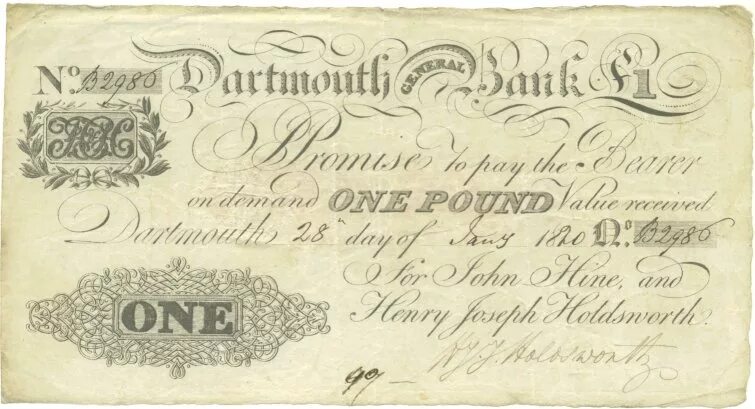 No. B2986 Dartmouth GENERAL Bank £1
I Promise to pay the Bearer
on demand ONE POUND Value received
Dartmouth 28th day of Jany 1820 No. B2986
For John Hine, and
Henry Joseph Holdsworth.
ONE
H J Holdsworth
99